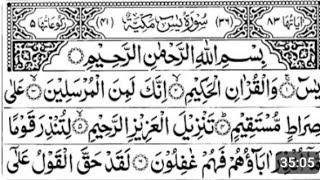 اٰیاتها ۸۳ (۳۶) سُوْرَةُ يٰسٓ مَكِّيَّةٌ (۴۱) رکوعاتها ۵
بِسْمِ اللّٰهِ الرَّحْمٰنِ الرَّحِيْمِ
يٰسٓ ۚ وَالْقُرْاٰنِ الْحَكِيْمِ ۙ اِنَّكَ لَمِنَ الْمُرْسَلِيْنَ ۙ عَلٰى
صِرَاطٍ مُّسْتَقِيْمٍ ؕ تَنْزِيْلَ الْعَزِيْزِ الرَّحِيْمِ ۙ لِتُنْذِرَ قَوْمًا
اٰبَآؤُهُمْ فَهُمْ غٰفِلُوْنَ لَقَدْ حَقَّ الْقَوْلُ عَلٰٓى
35:05